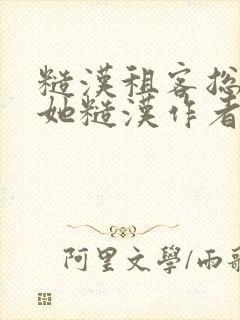 糙漢租客總
她糙漢作者
阿里文學/雨歌